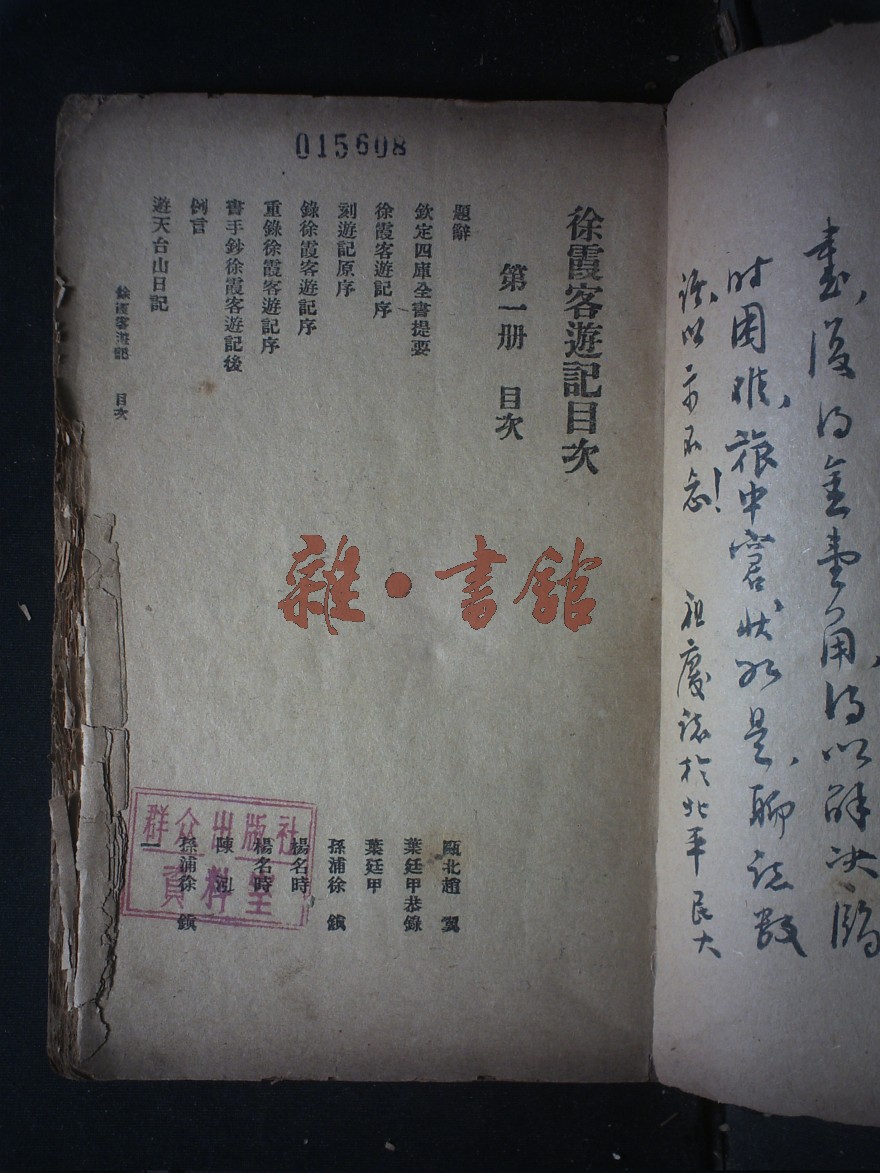 書,後……金……用,得以解决臨
时困难,旅中窘狀如是,聊誌數
語,以示不忘!　祖慶誌於北平民大
015608
徐霞客遊記目次
第一册　目次
題辭　甌北趙　翼
欽定四庫全書提要　葉廷甲恭錄
徐霞客遊記序　葉廷甲
刻遊記原序　孫浦徐　鎮
錄徐霞客遊記序　楊名時
重錄徐霞客遊記序　楊名時
書手鈔徐霞客遊記後　陳泓
例言　孫浦徐　鎮
遊天台山日記　一
徐霞客遊記　目次
雜·書館
群众出版社
資料室